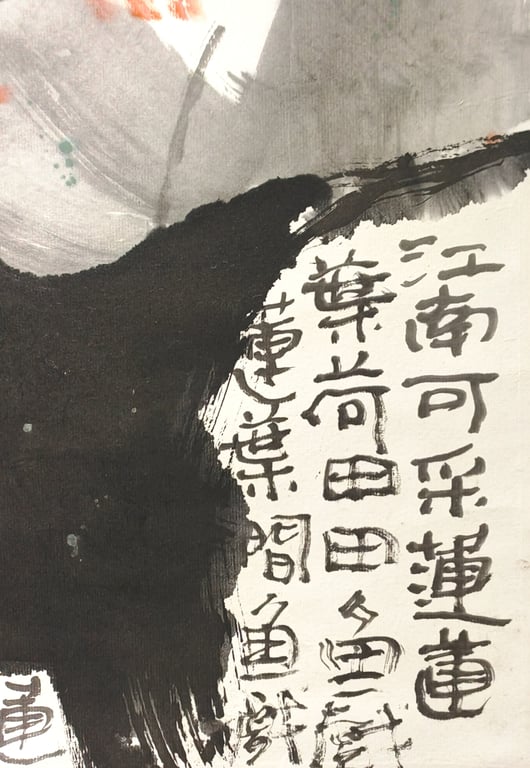 江南可采蓮蓮
葉荷田田魚戲
蓮葉間魚戲
蓮